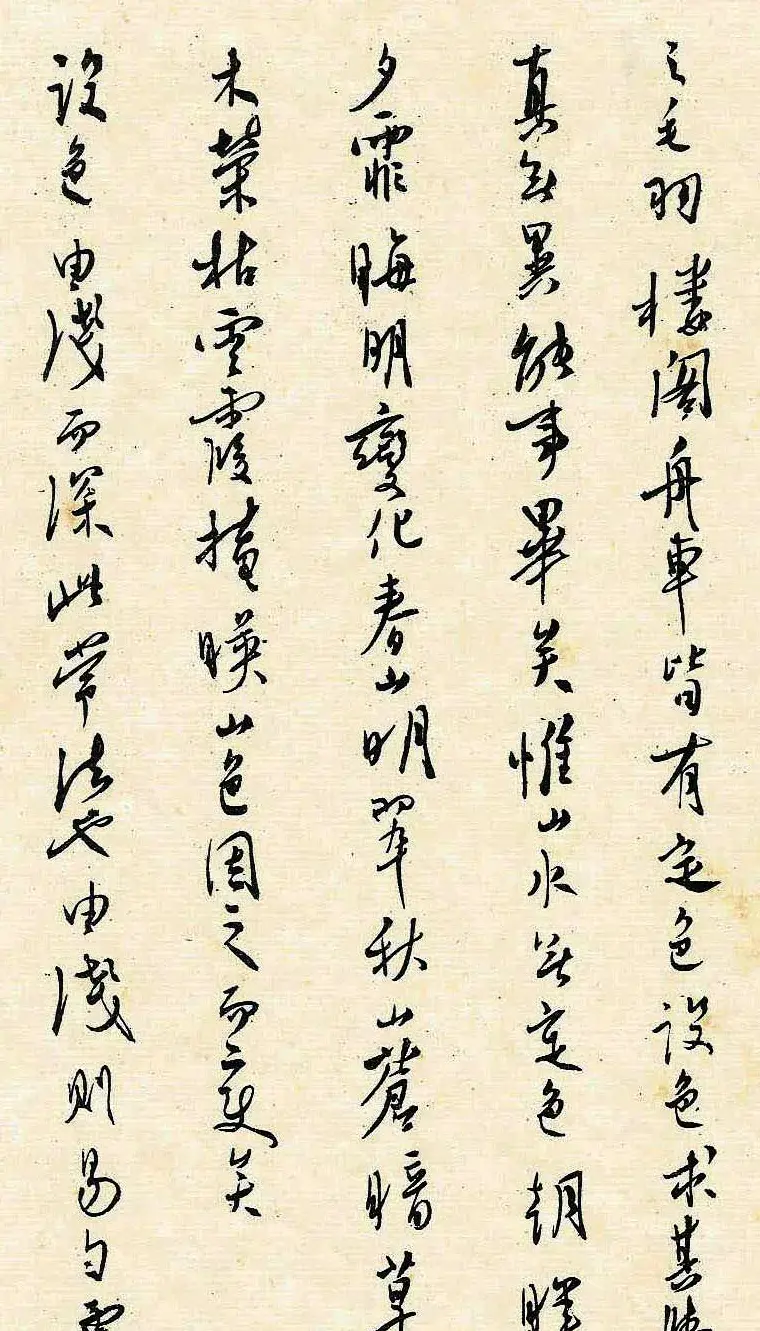 之毛羽楼阁舟車皆有定色設色求其
真無異能事畢矣惟山水無定色朝暉
夕霏晦明變化春山明翠秋山蒼暗草
木榮枯雲霞掩暎山色因之而変矣
設色由淺而深此常法也由淺則易匀